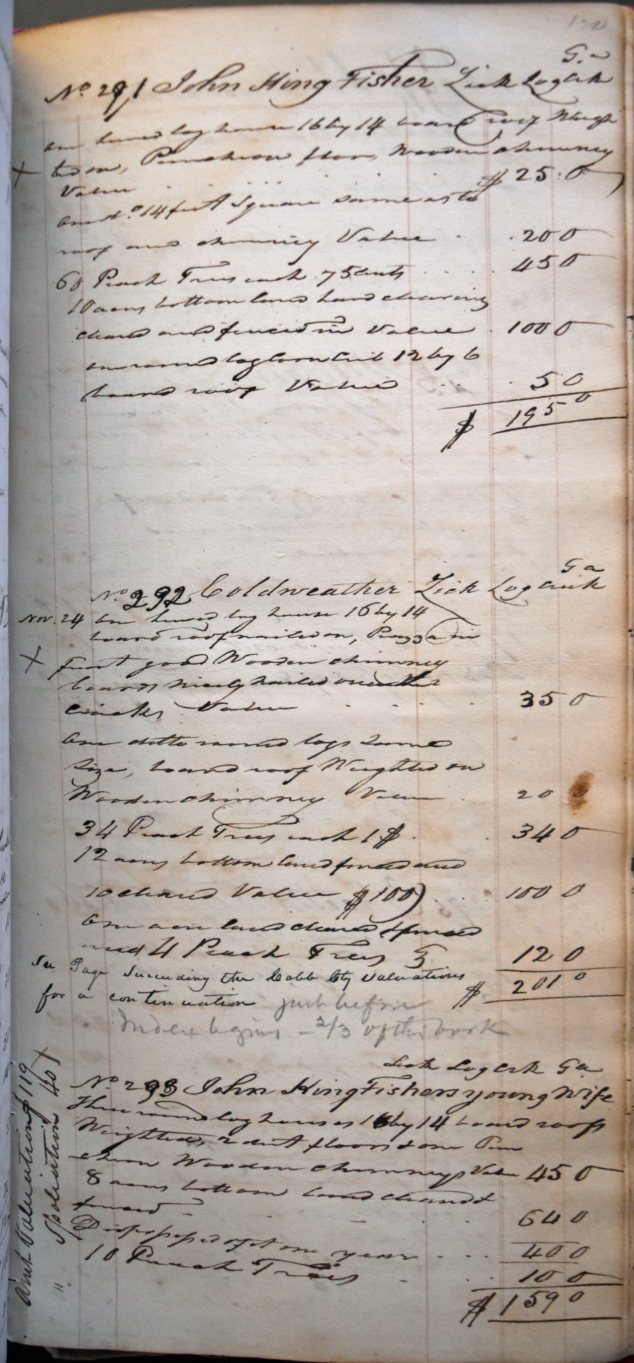 190
Ga
No 291 John King Fisher Lick Log Crk
One hewed log house 16 by 14 board roof Weigh
X ted on, Puncheon floor, Wooden chimney
Value $ 25.0
One do 14 feet Square same as to
roof and chimney Value 20 0
60 Peach Trees each 75 cents 45 0
10 acres bottom land hard clearing
cleared and fenced in Value 100 0
one round log Corn Crib 12 by 6
board roof Value 5 0
$ 195 0
Ga
No 292 Coldweather Lick Log Creek
Nov. 24 One hewed log house 16 by 14
board roof nailed on, Piazza in
X front good Wooden chimney
boards nicely nailed over the
cracks Value 35 0
One ditto round logs Same
Size, board roof Weighted on
Wooden chimney Value 20
34 Peach Trees each 1$ 34 0
12 acres bottom land fenced and
10 cleared Value $100) 100 0
One acre land cleared & fenced
and 4 Peach Trees } 12 0
See Page Succeeding the Cobb Cty Valuations $ 201 0
for a continuation just before
Index begins - 2/3 of the book
Lick Log Crk Ga
No 293 John King Fishers young Wife
Three round log houses 16 by 14 board roofs
Weighted, 2 dirt floors & one Pun
cheon Wooden chimneys Value 45 0
8 acres bottom land cleared &
fenced 64 0
Dispossessed of it one year 40 0
10 Peach Trees 10 0
$ 159 0
Valuations 119
Spoliation 40
X